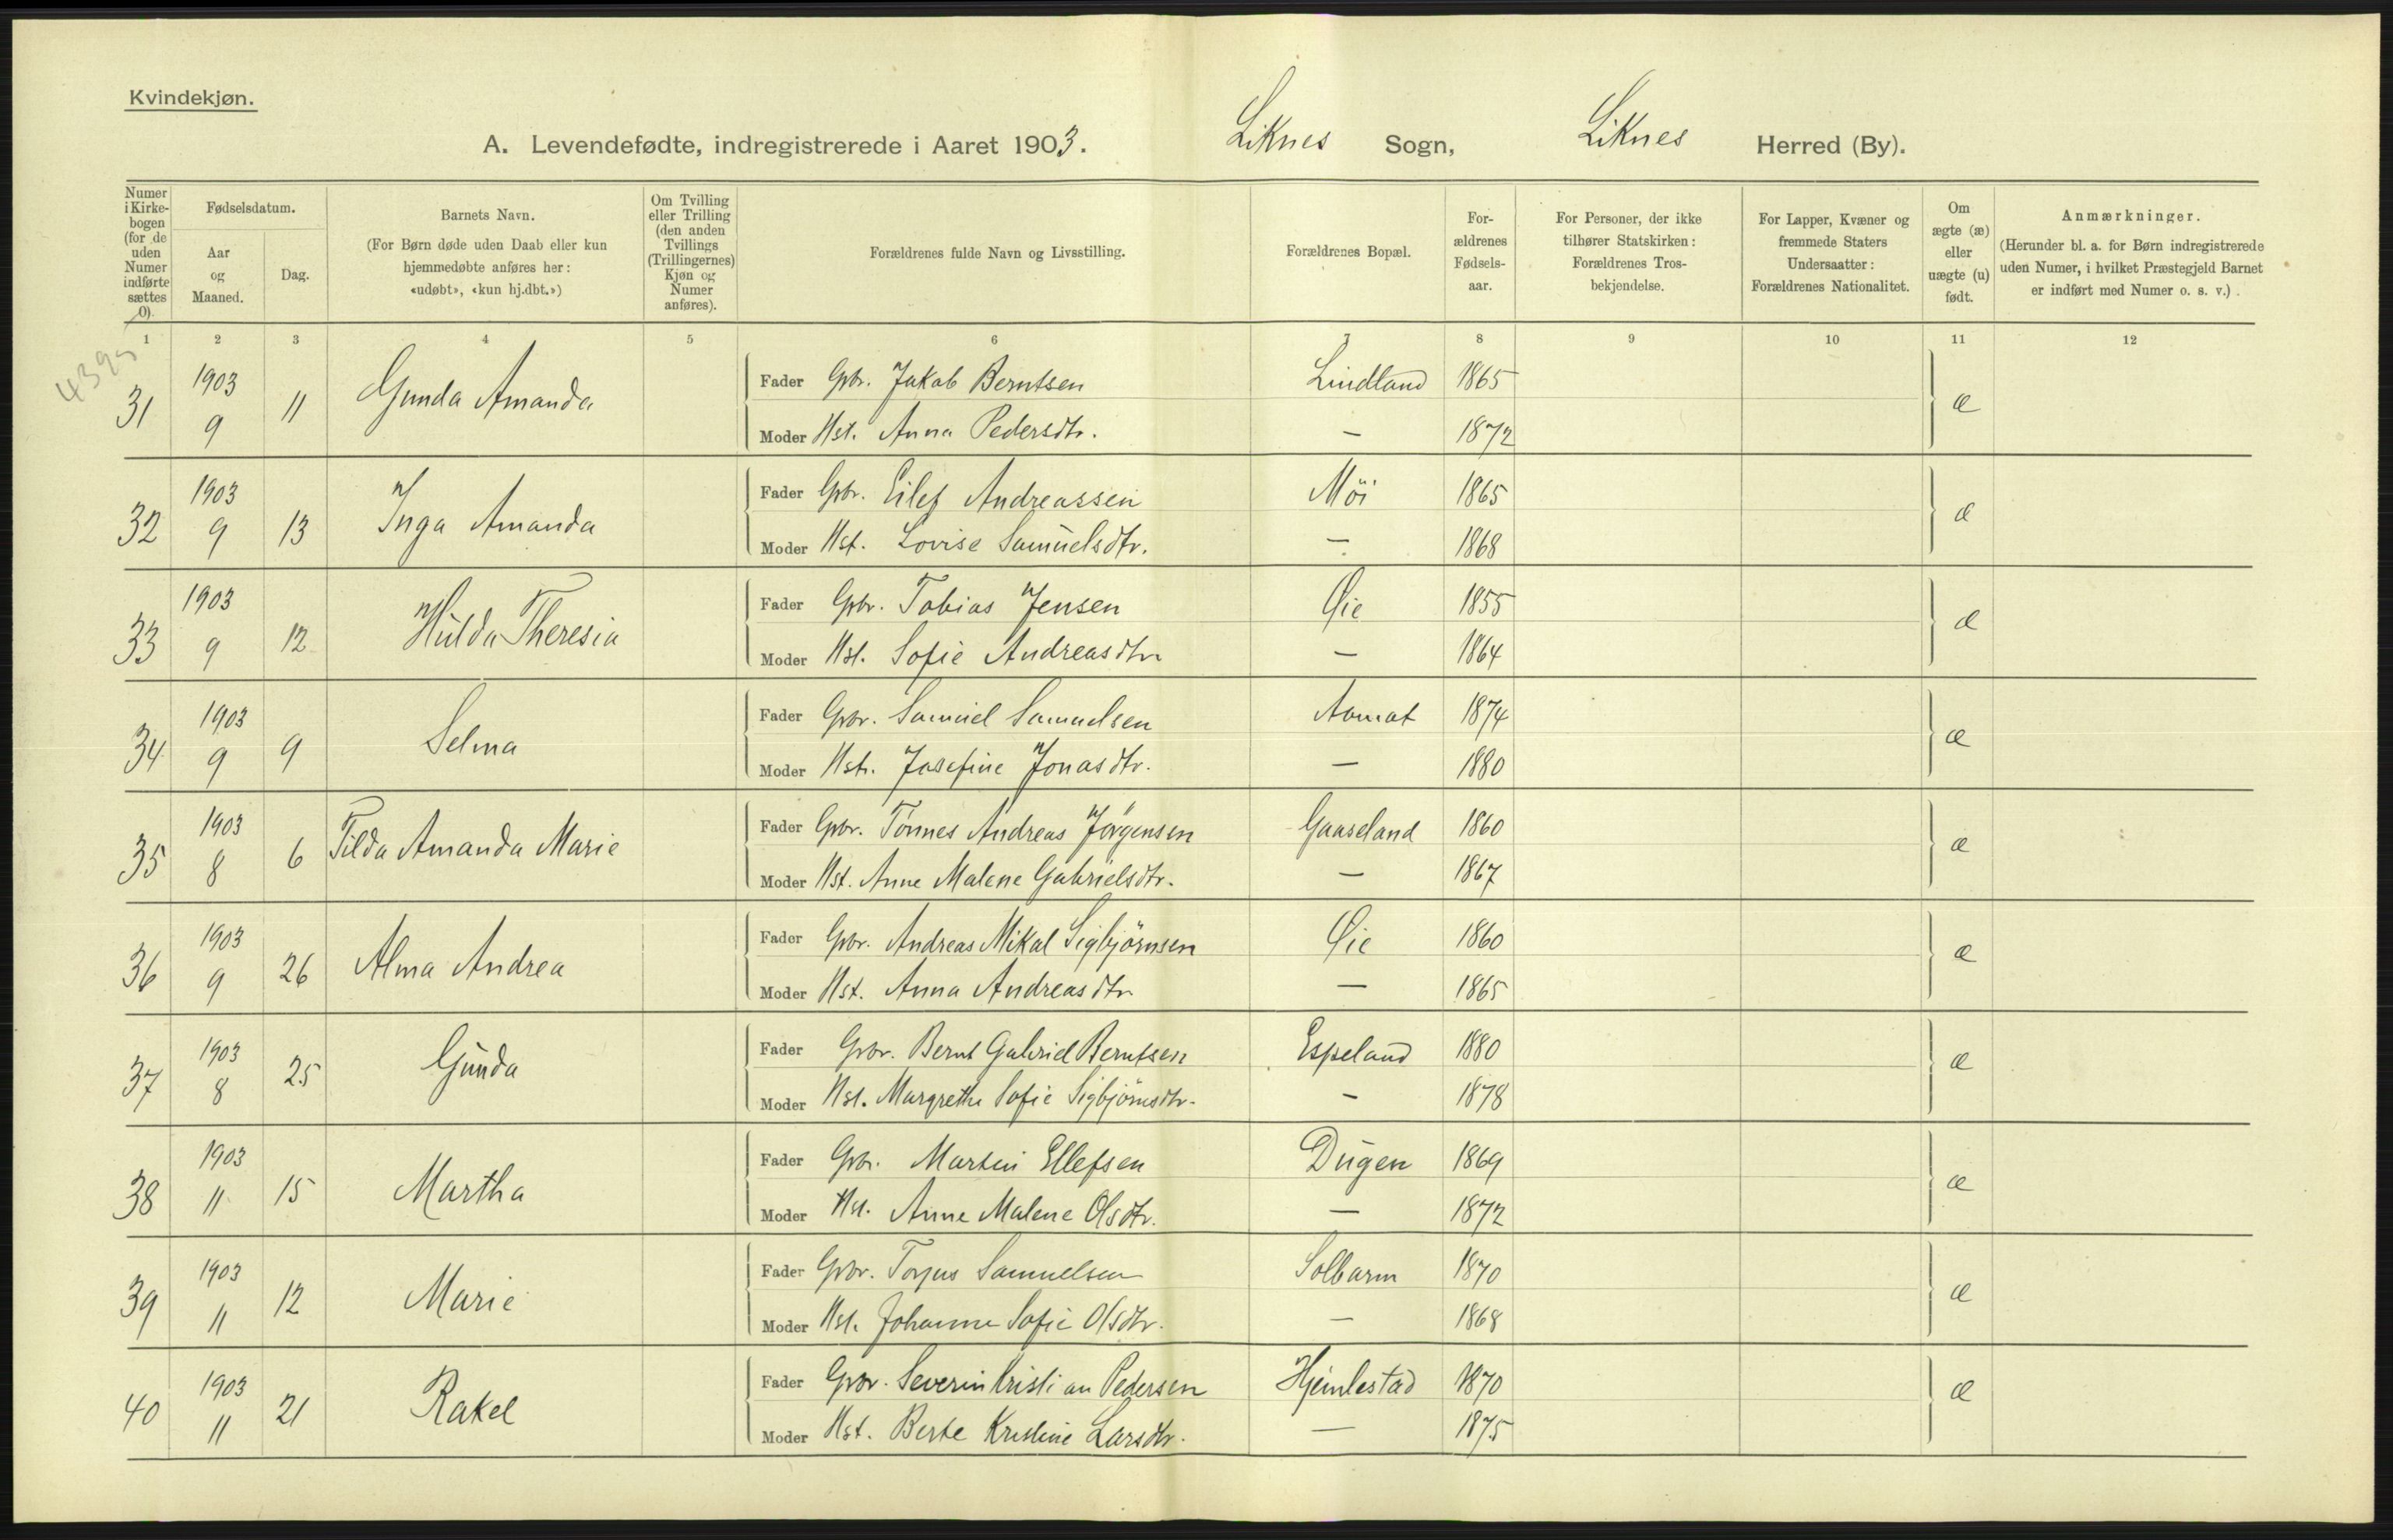 Kvindekjøn.
A. Levendefødte, indregistrerede i Aaret 1903. Liknes Sogn, Liknes Herred (By).
Numer i Kirkebogen (for de uden Numer indførte sættes 0).
Fødselsdatum.
Aar og Maaned.
Dag.
Barnets Navn.
(For Børn døde uden Daab eller kun
hjemmedøbte anføres her:
«udøbt», «kun hj.dbt.»)
Om Tvilling
eller Trilling
(den anden
Tvillings
(Trillingernes)
Kjøn og
Numer
anføres).
Forældrenes fulde Navn og Livsstilling.
Forældrenes Bopæl.
For-
ældrenes
Fødsels-
aar.
For Personer, der ikke
tilhører Statskirken:
Forældrenes Tros-
bekjendelse.
For Lapper, Kvæner og
fremmede Staters
Undersaatter:
Forældrenes Nationalitet.
Om
ægte (æ)
eller
uægte (u)
født.
Anmærkninger.
(Herunder bl. a. for Børn indregistrerede
uden Numer, i hvilket Præstegjeld Barnet
er indført med Numer o. s. v.)
1 2 3 4 5 6 7 8 9 10 11 12
31 1903 9 11 Gunda Amanda
Fader Gbr. Jakob Berntsen Lindland 1865 æ
Moder Hst. Anna Pedersdtr. — 1872
32 1903 9 13 Inga Amanda
Fader Gbr. Eilef Andreassen Möi 1865 æ
Moder Hst. Lovise Samuelsdtr. — 1868
33 1903 9 12 Hulda Theresia
Fader Gbr. Tobias Jensen Øie 1855 æ
Moder Hst. Sofie Andreasdtr. — 1864
34 1903 9 9 Selma
Fader Gbr. Samuel Samuelsen Aamot 1874 æ
Moder Hst. Josefine Jonasdtr. — 1880
35 1903 8 6 Tilda Amanda Marie
Fader Gbr. Tönnes Andreas Jörgensen Gaaseland 1860 æ
Moder Hst. Anne Malene Gabrielsdtr. — 1867
36 1903 9 26 Alma Andrea
Fader Gbr. Andreas Mikal Sigbjörnsen Øie 1860 æ
Moder Hst. Anna Andreasdtr. — 1865
37 1903 8 25 Gunda
Fader Gbr. Bernt Gabriel Berntsen Espeland 1880 æ
Moder Hst. Margrethe Sofie Sigbjörnsdtr. — 1878
38 1903 11 15 Martha
Fader Gbr. Martin Ellefsen Dugen 1869 æ
Moder Hst. Anne Malene Olsdtr. — 1872
39 1903 11 12 Marie
Fader Gbr. Torjus Samuelsen Solbarm 1870 æ
Moder Hst. Johanne Sofie Olsdtr. — 1868
40 1903 11 21 Rakel
Fader Gbr. Severin Kristian Pedersen Hjemlestad 1870 æ
Moder Hst. Berte Kristine Larsdtr. — 1875